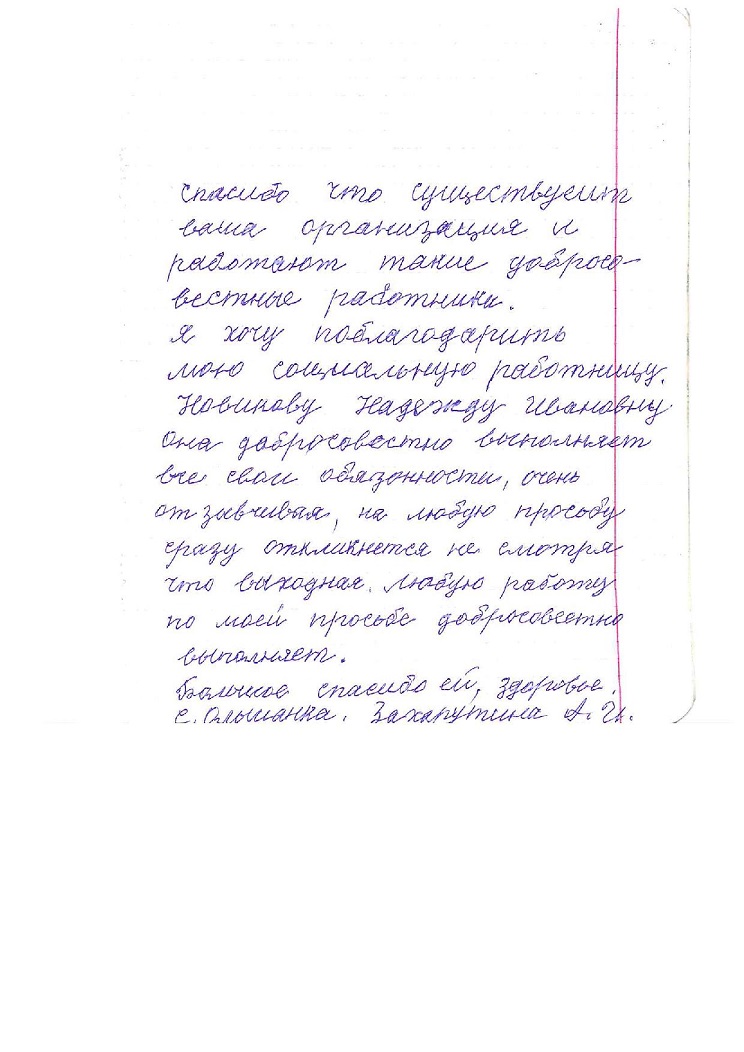 Спасибо что существуеит
ваша организация и
работают такие добросо-
вестные работники.
Я хочу поблагодарить
мою социальную работницу.
Новикову Надежду Ивановну
Она добросовестно выполняет
все свои обязонности, очень
отзывчивая, на любую просьбу
сразу откликнется не смотря
что выходная. Любую работу
по моей просьбе добросовестно
выполняет.
Большое спасибо ей, здоровье.
с. Ольшанка. Захапутина А. И.